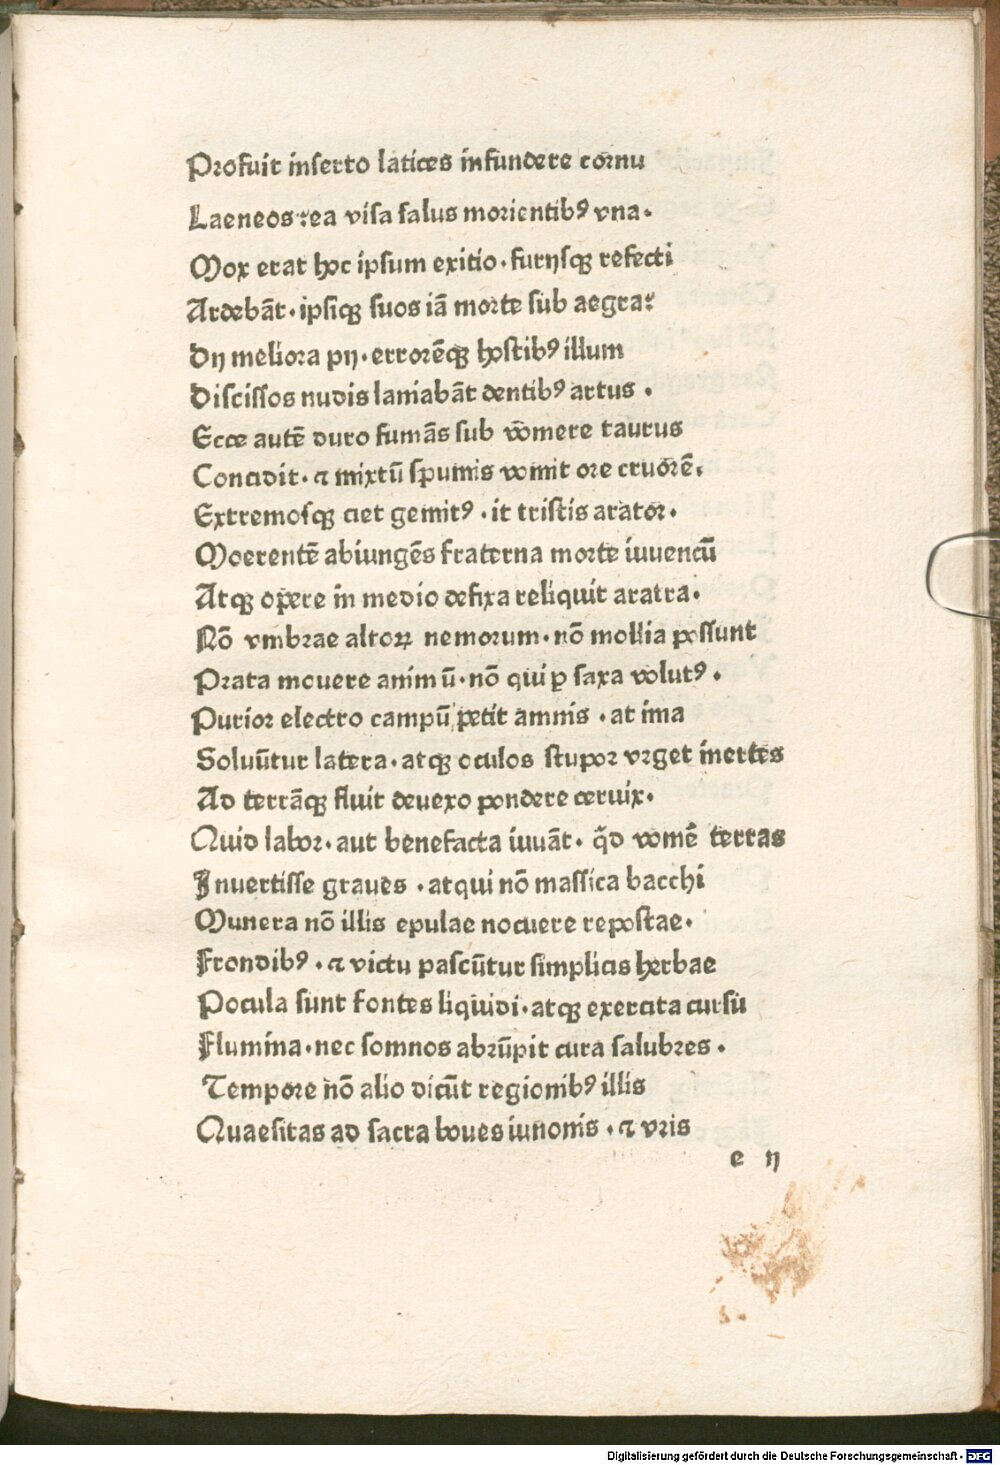 Profuit inserto latices infundere cornu
Laeneos: ea visa salus morientibꝰ vna.
Mox erat hoc ipsum exitio. furijsqꝫ refecti
Ardebāt. ipsiqꝫ suos iā morte sub aegra:
Dij meliora pij. errorēqꝫ hostibꝰ illum
Discissos nudis laniabāt dentibꝰ artus .
Ecce autē duro fumās sub vomere taurus
Concidit. ⁊ mixtū spumis vomit ore cruorē.
Extremosqꝫ ciet gemitꝰ . it tristis arator.
Moerentē abiungēs fraterna morte iuuencū
Atqꝫ opere in medio defixa reliquit aratra.
Nō vmbrae altoꝝ nemorum. nō mollia possunt
Prata mouere animū. nō qui ꝑ saxa volutꝰ .
Purior electro campū petit amnis . at ima
Soluūtur latera. atqꝫ oculos stupor vrget inertes
Ad terrāqꝫ fluit deuexo pondere ceruix.
Quid labor. aut benefacta iuuāt. q̄d vomē terras
Inuertisse graues . atqui nō massica bacchi
Munera nō illis epulae nocuere repostae.
Frondibꝰ . ⁊ victu pascūtur simplicis herbae
Pocula sunt fontes liquidi. atqꝫ exercita cursu
Flumina. nec somnos abrūpit cura salubres .
Tempore nō alio dicūt regionibꝰ illis
Quaesitas ad sacra boues iunonis . ⁊ vris
e ij
Digitalisierung gefördert durch die Deutsche Forschungsgemeinschaft - DFG